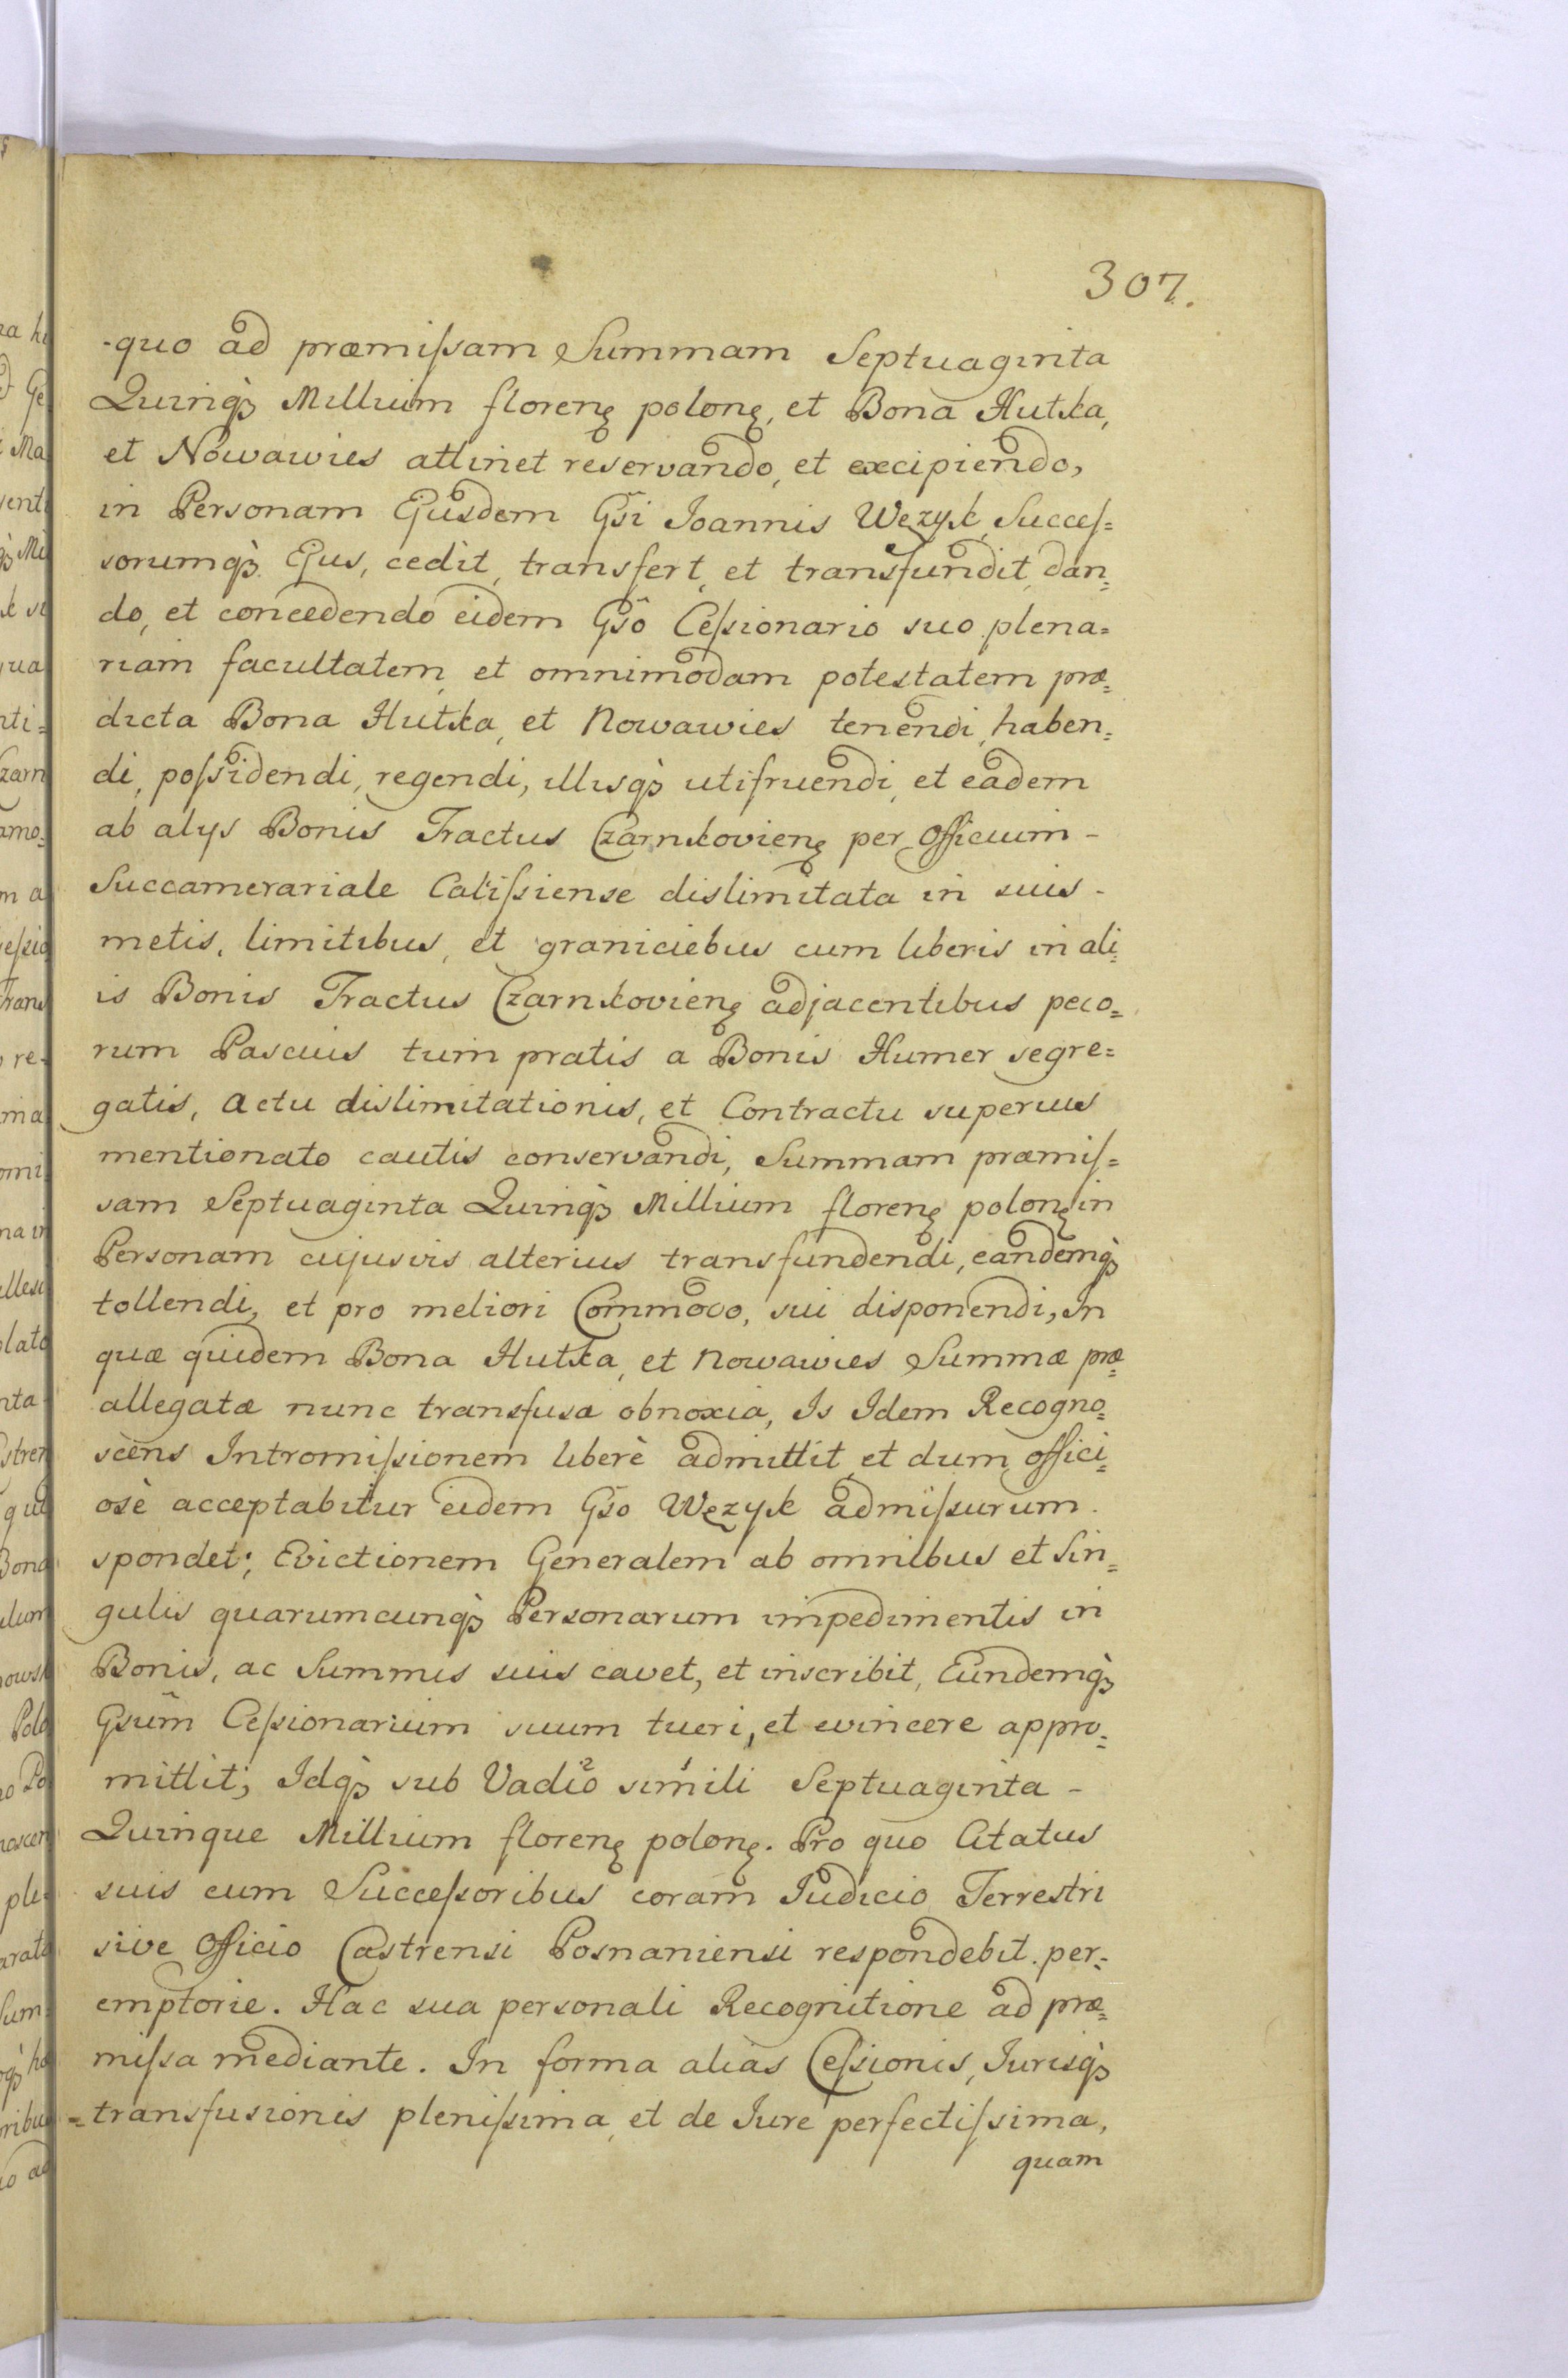 307.
-quo ad præmiſsam Summam Septuaginta
Quinq́ꝫ Millium florenꝫ polonꝫ, et Bona Hutka,
et Nowawies attinet reservando, et excipiendo,
in Personam Ejusdem Gsi Ioannis Wężyk, Succeſ=
sorumq́ꝫ Ejus, cedit, transfert, et transfundit, dan=
do, et concedendo eidem Gso Ceſsionario suo plena=
riam facultatem, et omnimodam potestatem præ=
dicta Bona Hutka, et Nowawies tenendi, haben=
di, poſsidendi, regendi, illisq́ꝫ utifruendi, et eadem
ab alijs Bonis Tractus Czarnkovienꝫ per Officium -
Succamerariale Caliſsiense dislimitata in suis -
metis, limitibus, et graniciebus cum liberis in ali=
is Bonis Tractus Czarnkovienꝫ adjacentibus peco=
rum Pascuis tum pratis a Bonis Humer segre=
gatis, actu dislimitationis, et Contractu superius
mentionato cautis conservandi, Summam præmiſ=
sam Septuaginta Quinq́ꝫ Millium florenꝫ polonꝫ in
Personam cujusvis alterius transfundendi, eandemq́ꝫ
tollendi, et pro meliori Commodo, sui disponendi, In
quæ quidem Bona Hutka, et Nowawies Summæ præ=
allegatæ nunc transfusæ obnoxia, Is Idem Recogno=
scens Intromiſsionem liberè admittit, et dum offici=
osè acceptabitur eidem Gso Wężyk admiſsurum.
spondet; Evictionem Generalem ab omnibus et Sin=
gulis quarumcunq́ꝫ Personarum impedimentis in
Bonis, ac Summis suis cavet, et inscribit, Eundemq́ꝫ
Gsum Ceſsionarium suum tueri, et evincere appro=
mittit; Idq́ꝫ sub Vadio² simili¹ Septuaginta -
Quinque Millium florenꝫ polonꝫ. Pro quo Citatus
suis cum Succeſsoribus coram Iudicio Terrestri
sive Officio Castrensi Posnaniensi respondebit per=
emptorie. Hac sua personali Recognitione ad præ=
miſsa mediante. In forma alias Ceſsionis, Iurisq́ꝫ
=transfusionis pleniſsima, et de Iure perfectiſsima,
quam